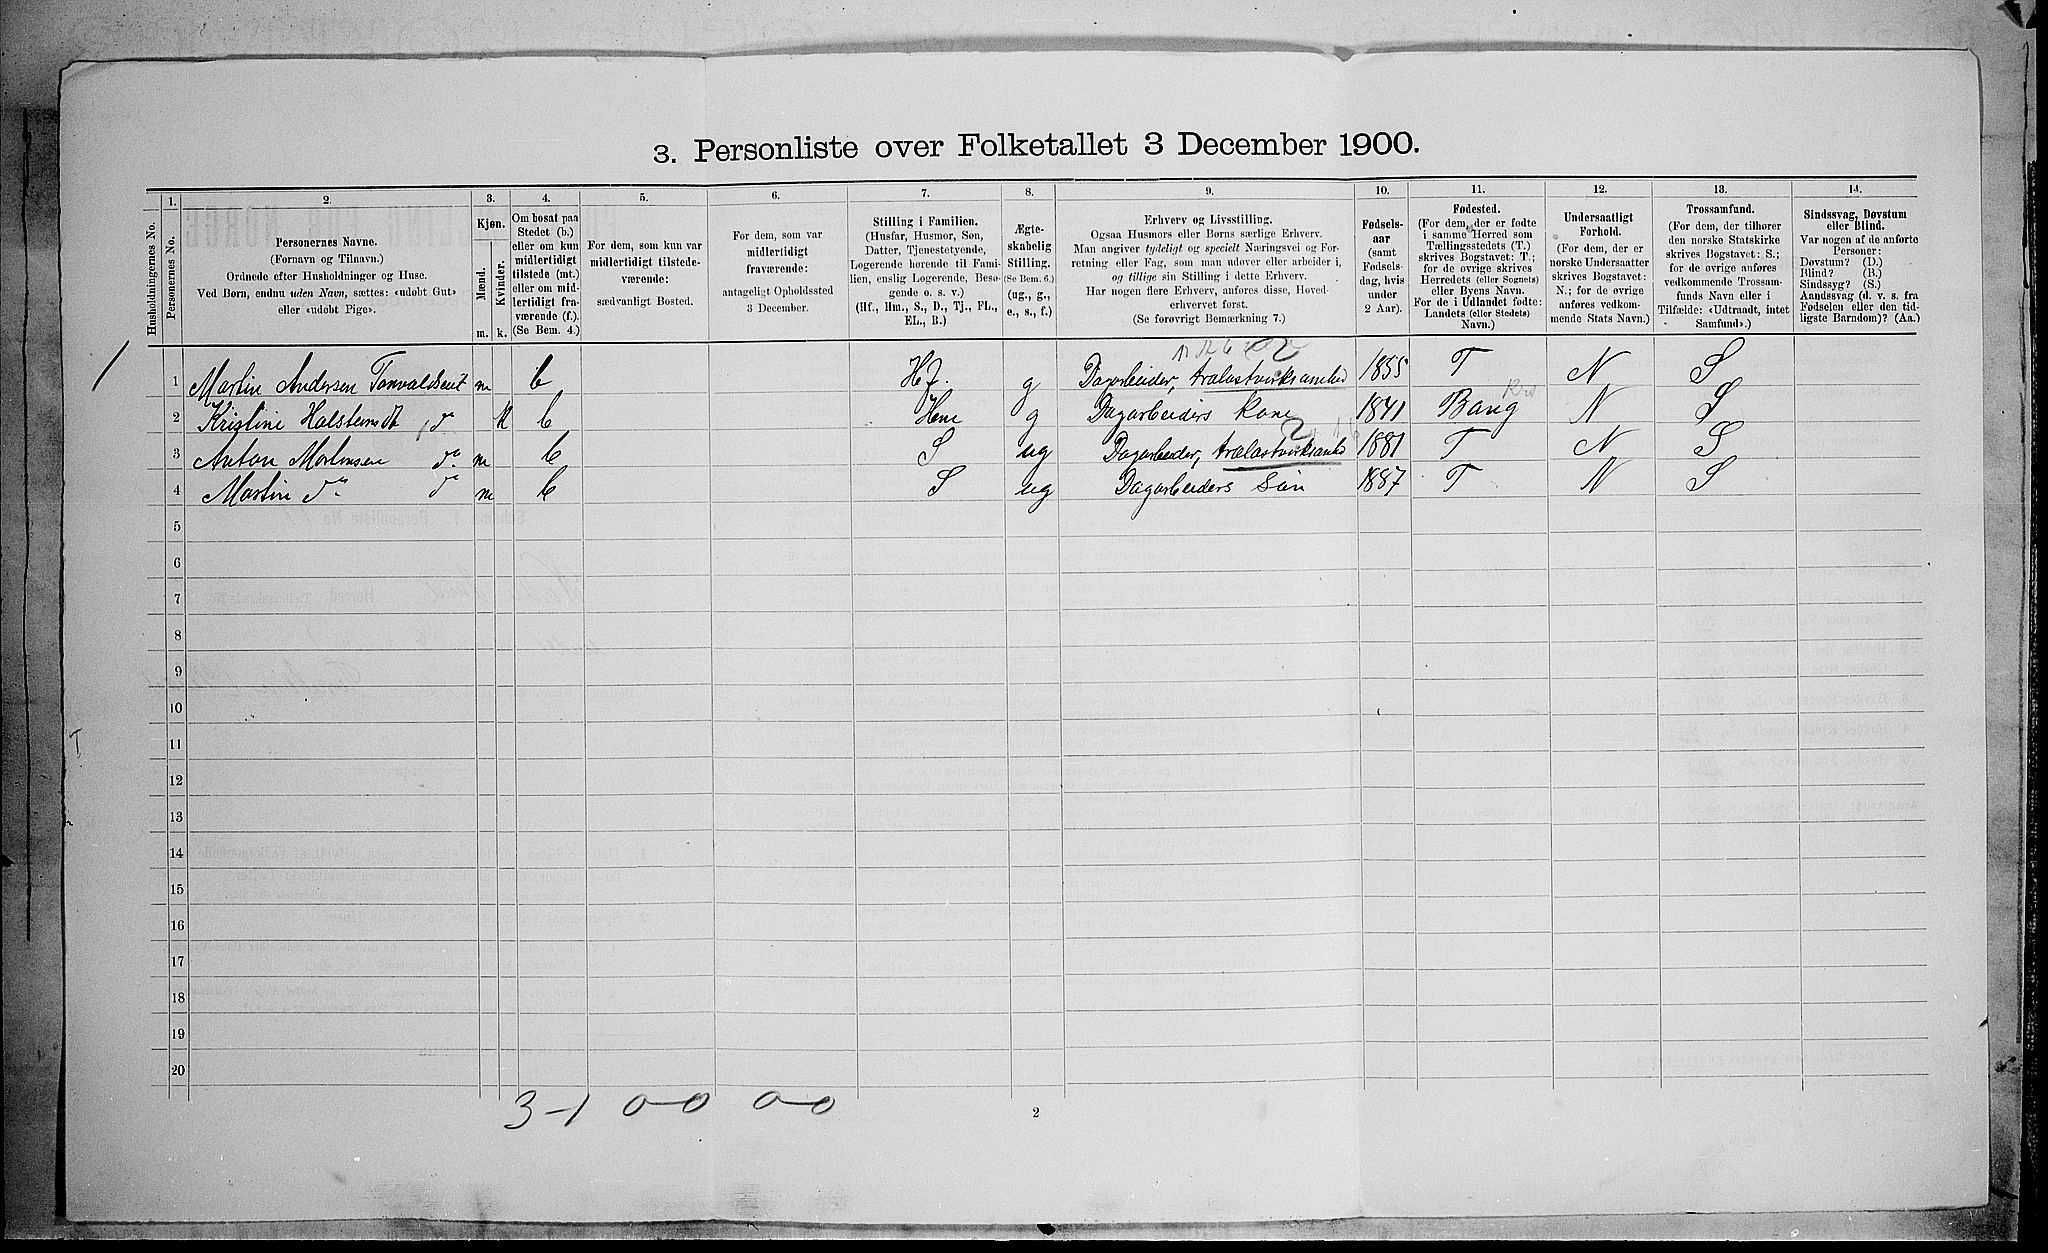 3. Personliste over Folketallet 3 December 1900.
1. 2. 3. 4. 5. 6. 7. 8. 9. 10. 11. 12. 13. 14.
Husholdningernes No.
Personernes No.
Personernes Navne.
(Fornavn og Tilnavn.)
Ordnede efter Husholdninger og Huse.
Ved Børn, endnu uden Navn, sættes: «udøbt Gut»
eller «udøbt Pige».
Kjøn.
Mænd.
Kvinder.
m. k.
Om bosat paa
Stedet (b.)
eller om kun
midlertidigt
tilstede (mt.)
eller om mid-
lertidigt fra-
værende (f.).
(Se Bem. 4.)
For dem, som kun var
midlertidigt tilstede-
værende:
sædvanligt Bosted.
For dem, som var
midlertidigt
fraværende:
antageligt Opholdssted
3 December.
Stilling i Familien.
(Husfar, Husmor, Søn,
Datter, Tjenestetyende,
Logerende hørende til Fami-
lien, enslig Logerende, Besø-
gende o. s. v.)
(Hf., Hm., S., D., Tj., FL.,
EL., B.)
Ægte-
skabelig
Stilling.
(Se Bem. 6.)
(ug., g.,
e., s., f.)
Erhverv og Livsstilling.
Ogsaa Husmors eller Børns særlige Erhverv.
Man angiver tydeligt og specielt Næringsvei og For-
retning eller Fag, som man udøver eller arbeider i,
og tillige sin Stilling i dette Erhverv.
Har nogen flere Erhverv, anføres disse, Hoved-
erhvervet først.
(Se forøvrigt Bemærkning 7.)
Fødsels-
aar
(samt
Fødsels-
dag, hvis
under
2 Aar).
Fødested.
(For dem, der er fødte
i samme Herred som
Tællingsstedets (T.)
skrives Bogstavet: T.;
for de øvrige skrives
Herredets (eller Sognets)
eller Byens Navn.
For de i Udlandet fødte:
Landets (eller Stedets)
Navn.)
Undersaatligt
Forhold.
(For dem, der er
norske Undersaatter
skrives Bogstavet:
N.; for de øvrige
anføres vedkom-
mende Stats Navn.)
Trossamfund.
(For dem, der tilhører
den norske Statskirke
skrives Bogstavet: S.;
for de øvrige anføres
vedkommende Trossam-
funds Navn eller i
Tilfælde: «Udtraadt, intet
Samfund».)
Sindssvag, Døvstum
eller Blind.
Var nogen af de anførte
Personer:
Døvstum? (D.)
Blind? (B.)
Sindssyg? (S.)
Aandssvag (d. v. s. fra
Fødselen eller den tid-
ligste Barndom)? (Aa.)
1 1 Martin Andersen m b Hf. g Dagarbeider, trælastvirksamhed 1855 T N S
2 Kristine Halstensdt do k b Hm g Dagarbeiders kone 1841 N S
3 Anton Martinsen do. m b S ug Dagarbeider, trælastvirksamhed 1881 T N S
4 Martin do. do m b S ug Dagarbeiders søn 1887 T N S
5
6
7
8
9
10
11
12
13
14
15
16
17
18
19
20
3-1 0-0 0-0
2